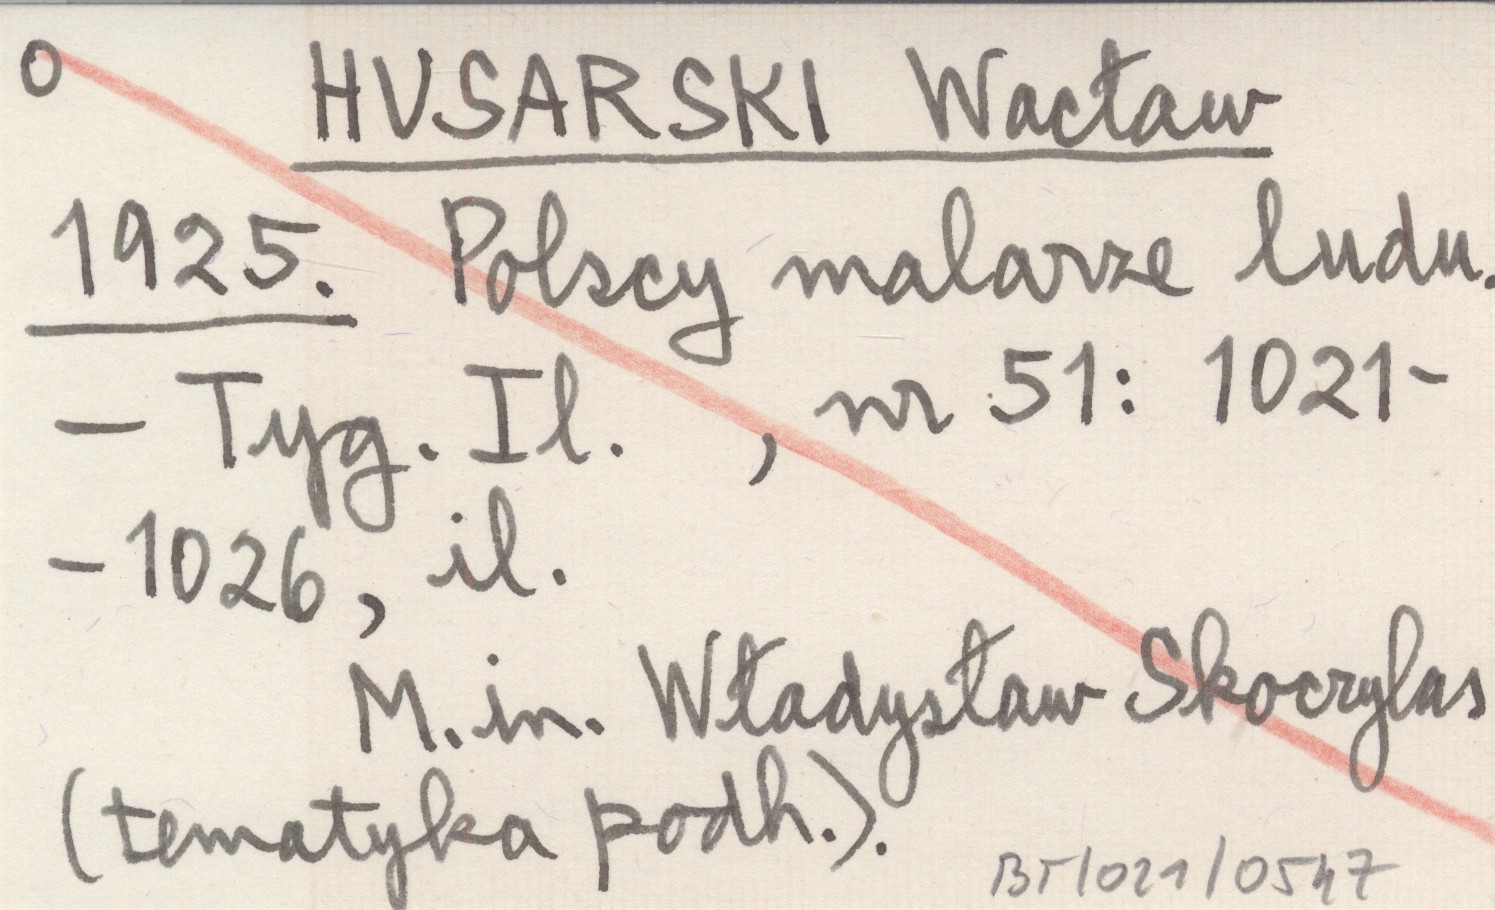 O HUSARSKI Wacław
1925. Polscy malarze ludu.
— Tyg. Il. , nr 51: 1021-
-1026, il.
M.in. Władysław Skoczylas
(tematyka podh.).
BT/021/0547